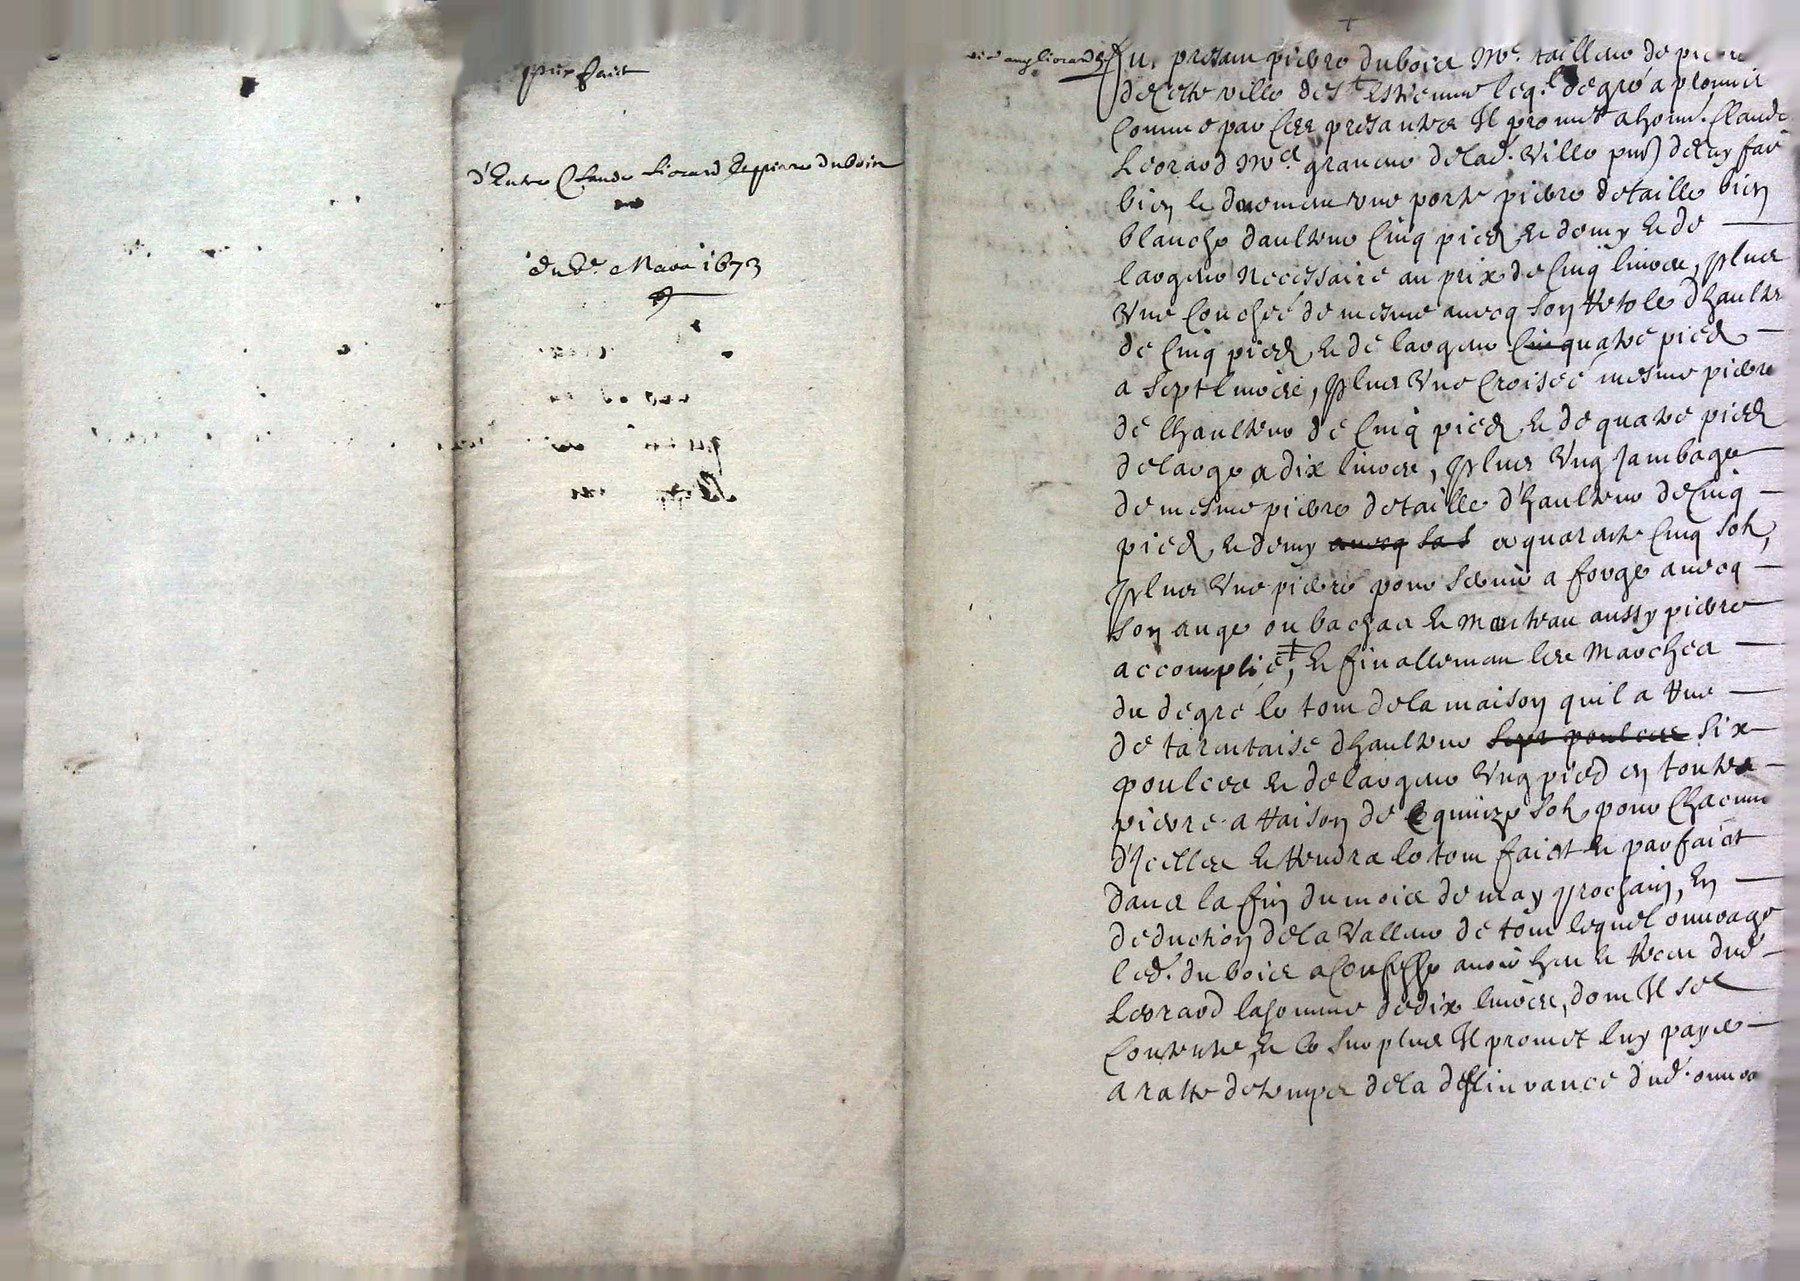 prix faict
d'Entre Claude Liorard Et pierre duboin
du 8e. Mars 1673
Fut present pierre dubois Me. tailleur de pierre
de cette ville de St Estienne leql. de gré a promis
comme par ces presantes Il promet a honn. Claude
Leorard Md. graveur de lad. ville pnt de luy fair
bien et deuement une porte pierre de taille bien
blanche d'aulteur cinq piedz et demy et de
largeur necessaire au prix de cinq livres, plus
une couchée de mesme avecq son d'haulteur
de cinq piedz et de largeur quatre piedz
a sept livres, plus une croisée mesme pierre
de lhaulteur de cinq piedz et de quatre piedz
de large a dix livres, plus ung jambage
de mesme pierre de taille d'haulteur de cinq
piedz et demy avecq sas a quarante cinq solz,
plus une pierre pour servir a forge avecq
son auge ou bachas et manteau aussy pierre
accomplie, et finallemant les marches
du degré le tout de la maison qu'il a rue
de tarentaise dhaulteur sept poulces six
poulces et de largeur ung pied en toutes
pierre a raison de quinze solz pour chacune
d'Icelles et rendra le tout faict et parfaict
dans la fin du mois de may prochain, En
deduction de la valleur de tout lequel ouvrage
led. dubois a confessé avoir heu et receu dud.
Leorard la somme de dix livres, dont Il se
contente, et le surplus Il promet luy payer
a ratte de temps de la deslivrance dud. ouvra